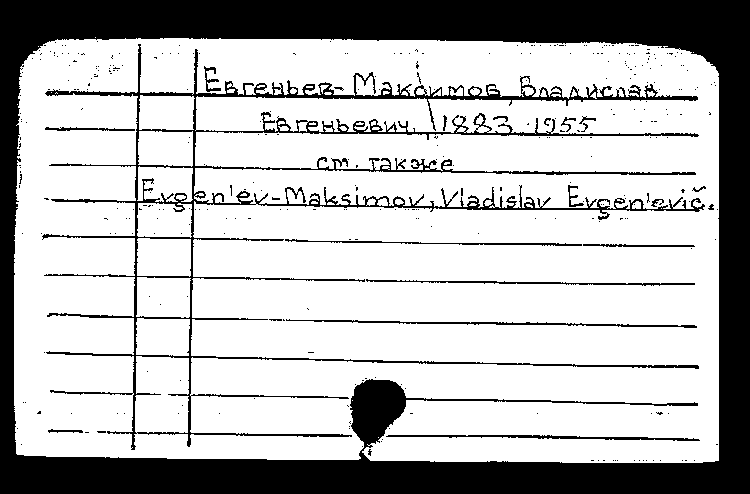 Евгеньев-Максимов, Владислав
Евгеньевич, 1883-1955
см. также
Evgen'ev-Maksimov, Vladislav Evgen'evič.